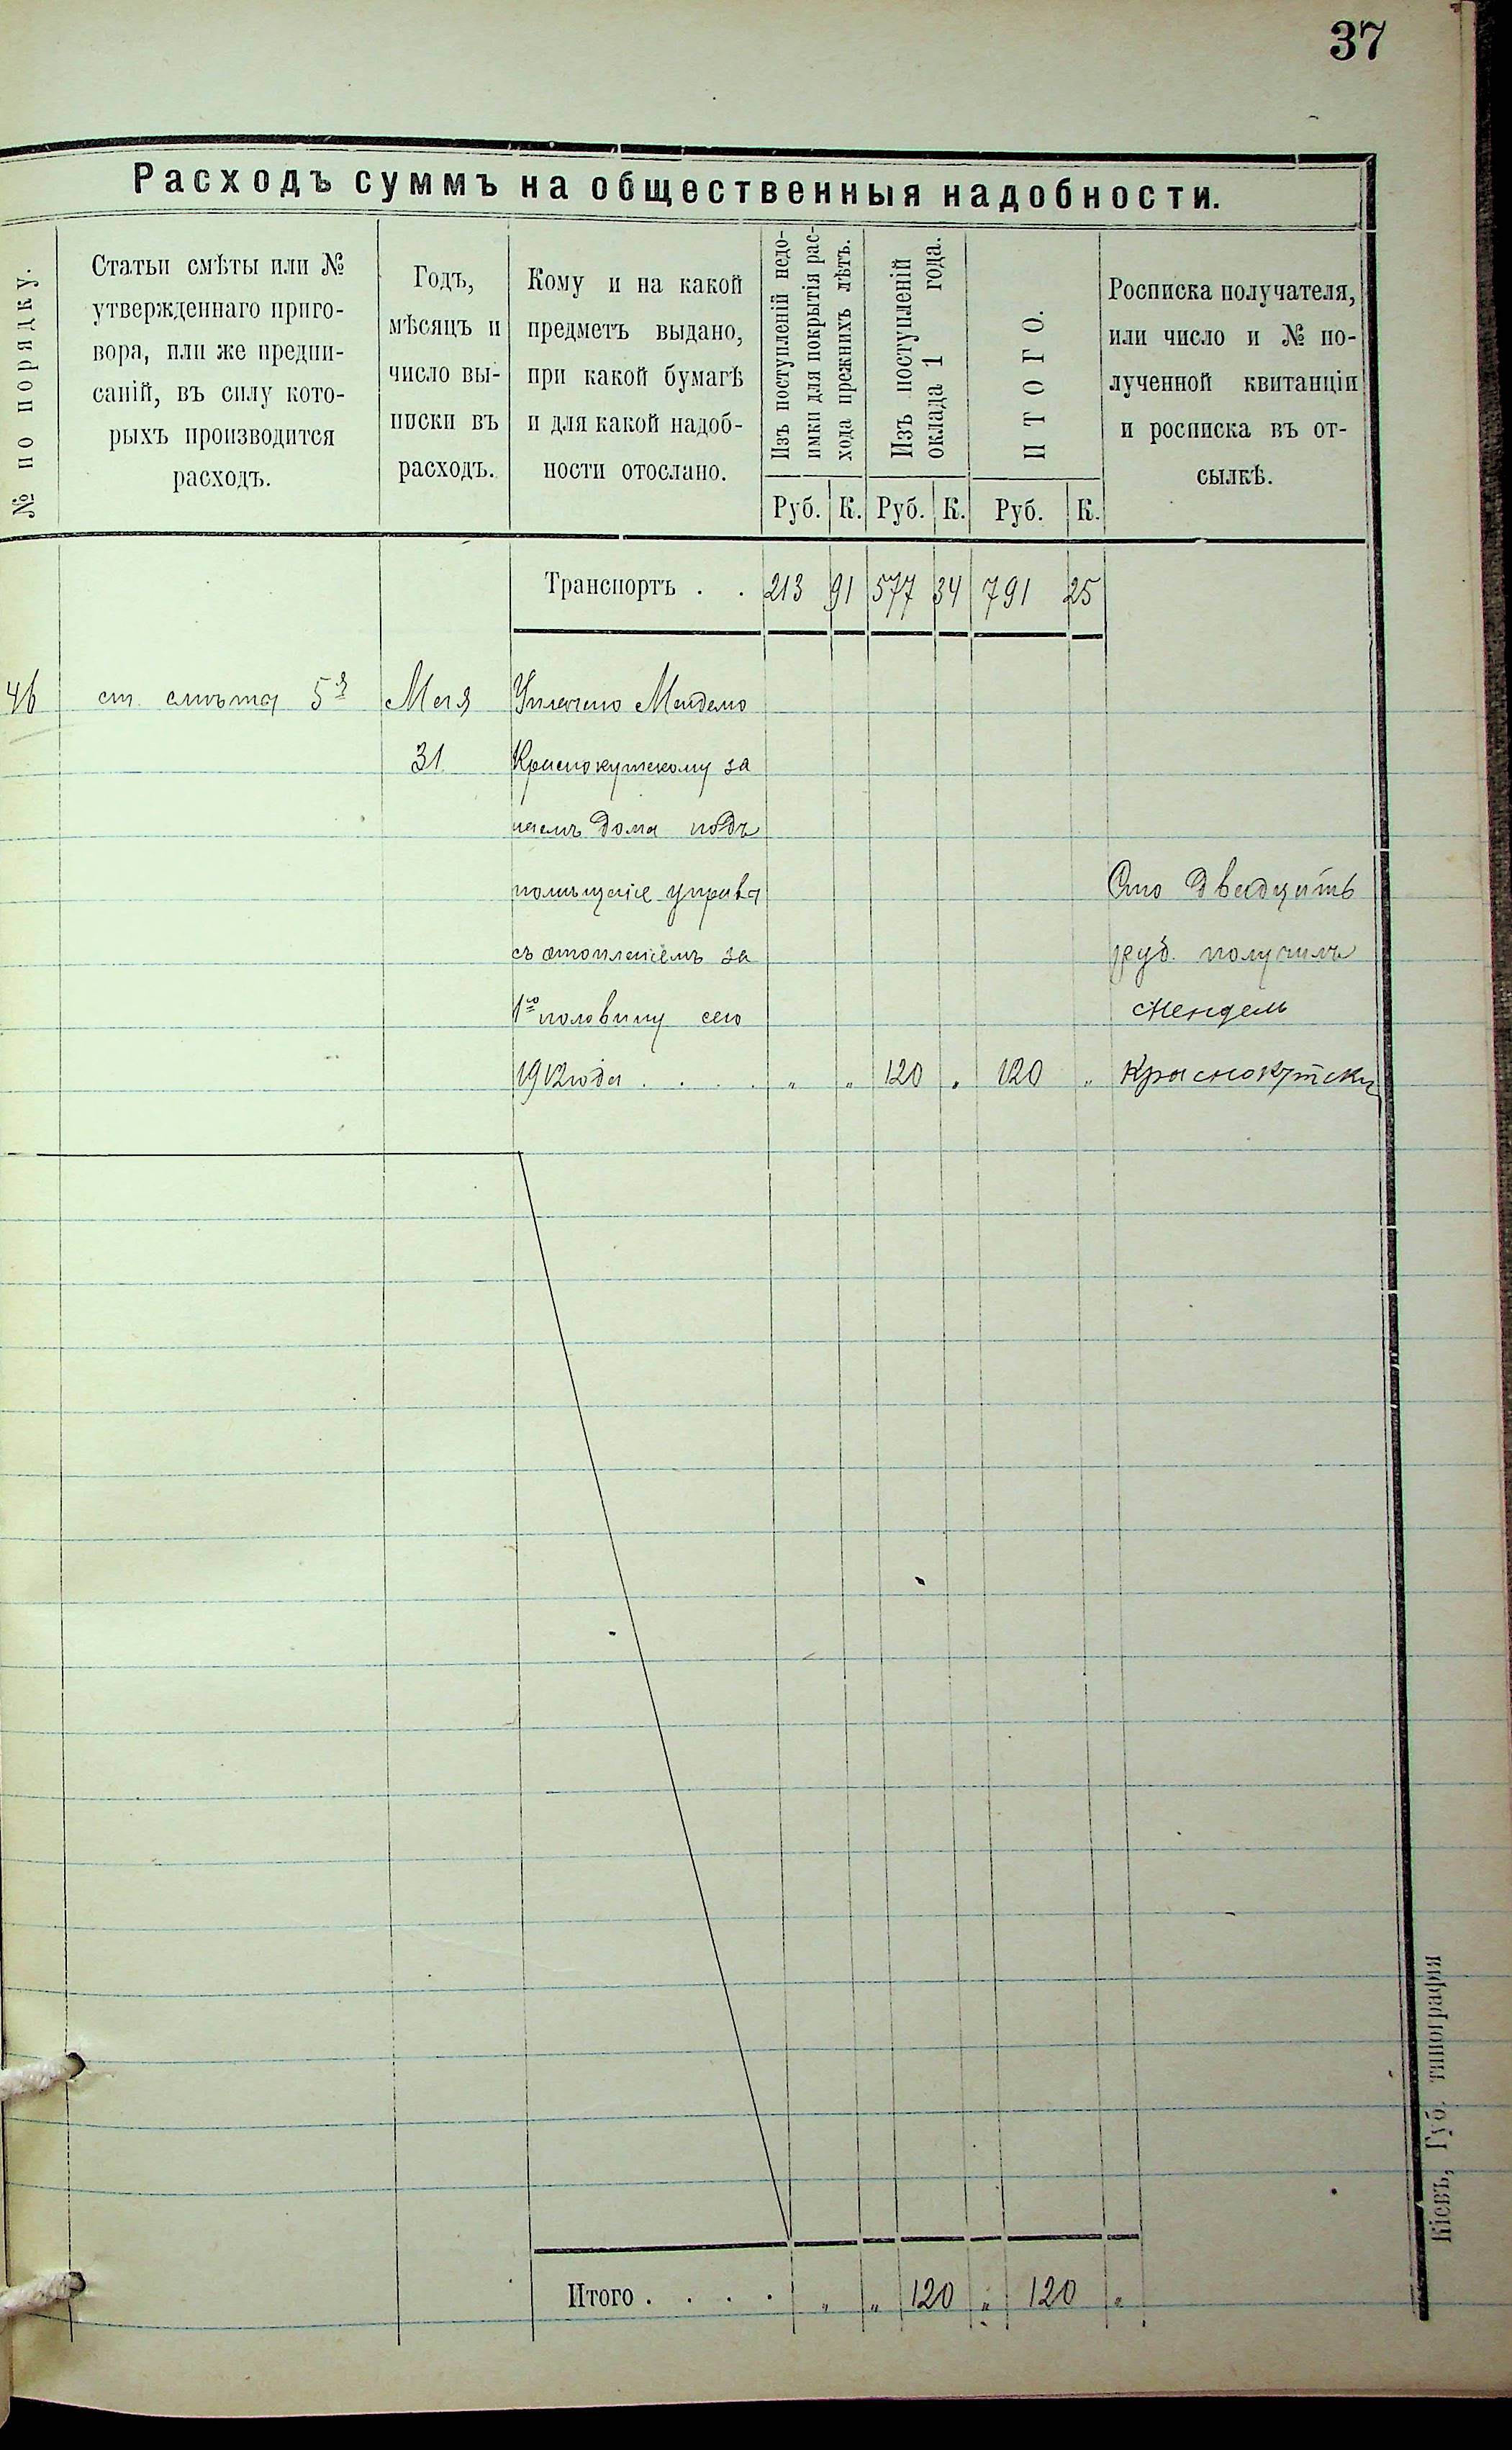 37
Расходъ суммъ на общественныя надобности.
№ по порядку.
Статьи смѣты или №
утвержденнаго приго-
вора, или же предпи-
саній, въ силу кото-
рыхъ производится
расходъ.
Годъ,
мѣсяцъ и
число вы-
писки въ
расходъ.
Кому и на какой
предметъ выдано,
при какой бумагѣ
и для какой надоб-
ности отослано.
Изъ поступленій недо-
имки для покрытія рас-
хода прежнихъ лѣтъ.
Изъ поступленій
оклада 1 года.
ИТОГО.
Росписка получателя,
или число и № по-
лученной квитанціи
и росписка въ от-
сылкѣ.
Руб. К. Руб. К. Руб. К.
Транспортъ . . 213 91 577 34 791 25
46 ст. смѣты 5я Мая Уплачено Менделю
31 Краснокутскому за
наемъ дома подъ
помѣщеніе управы Сто двадцать
съ отопленіемъ за руб. получилъ
1ю половину сего Мендель
1912 года . . . . „ „ 120 „ 120 „ Краснокутски
Итого . . . . „ „ 120 „ 120 „
Кіевъ, Губ. типографія